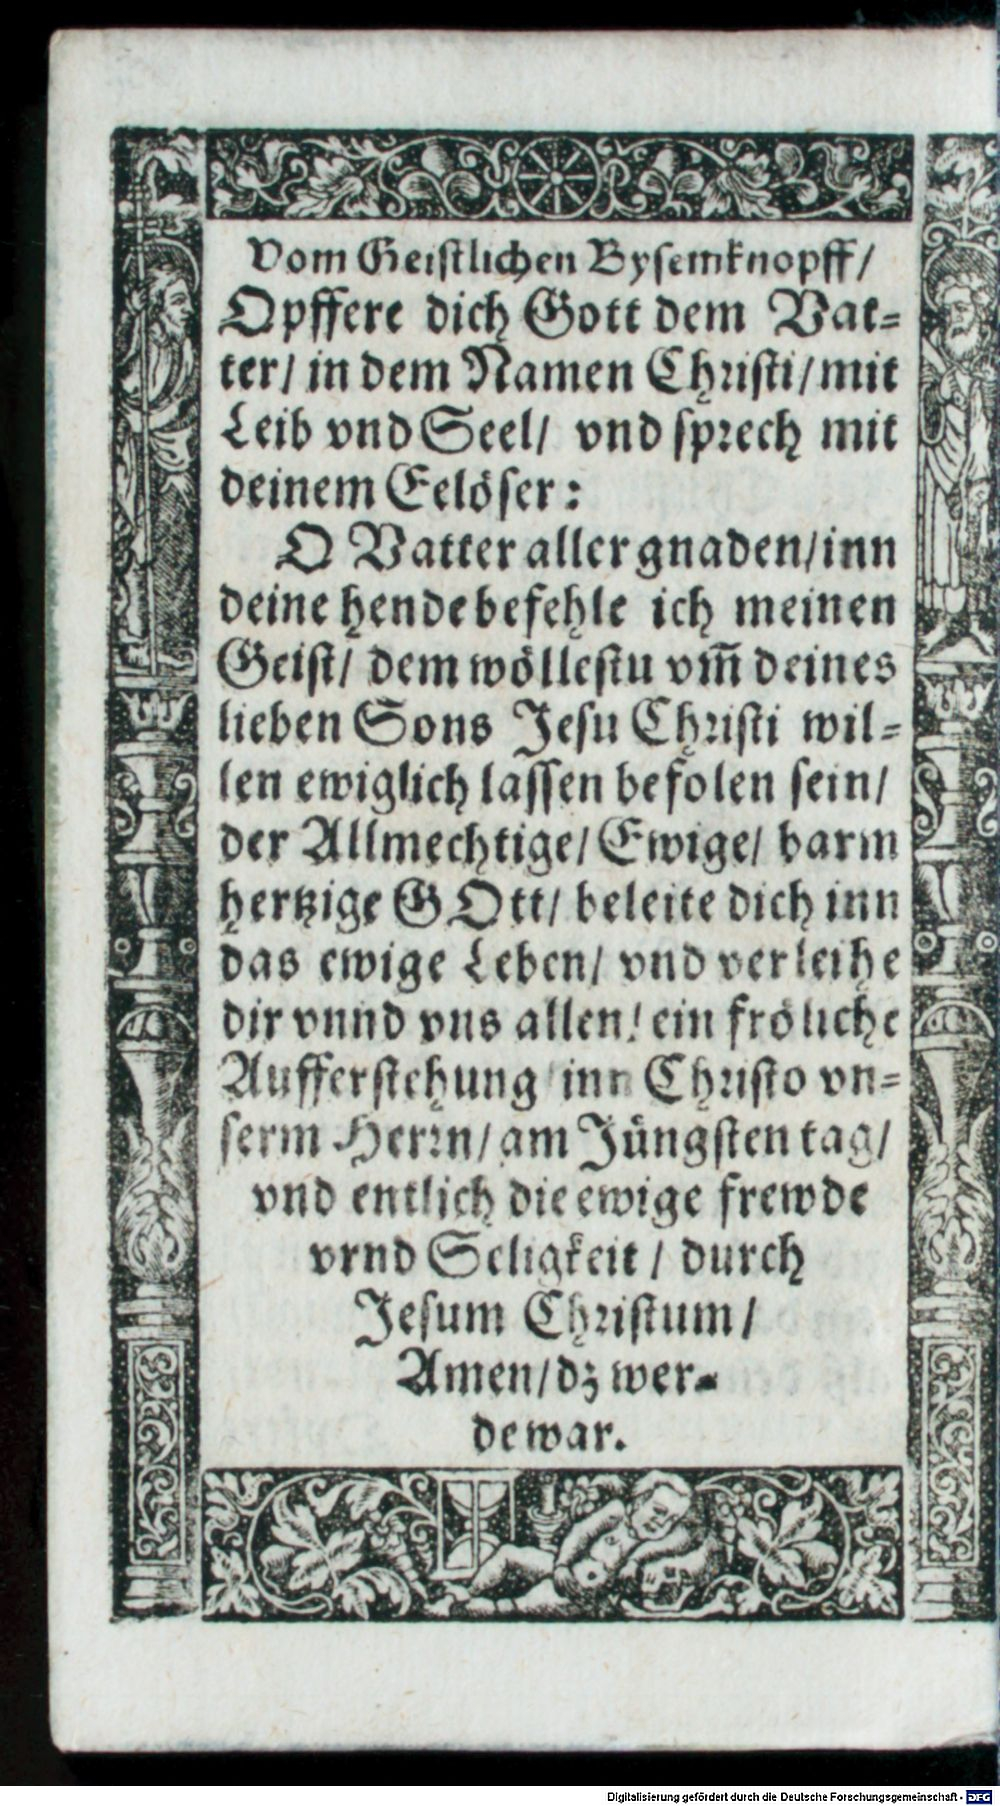 Vom Geistlichen Bysemknopff/
Opffere dich Gott dem Vat-
ter/ in dem Namen Christi/ mit
Leib vnd Seel/ vnd sprech mit
deinem Eelöser:
O Vatter aller gnaden/ inn
deine hende befehle ich meinen
Geist/ dem wöllestu vm̃ deines
lieben Sons Jesu Christi wil-
len ewiglich lassen befolen sein/
der Allmechtige/ Ewige/ barm
hertzige GOtt/ beleite dich inn
das ewige Leben/ vnd verleihe
dir vnnd vns allen/ ein fröliche
Aufferstehung inn Christo vn-
serm Herrn/ am Jüngsten tag/
vnd entlich die ewige frewde
vnnd Seligkeit/ durch
Jesum Christum/
Amen/ dz wer-
de war.
Digitalisierung gefördert durch die Deutsche Forschungsgemeinschaft - DFG